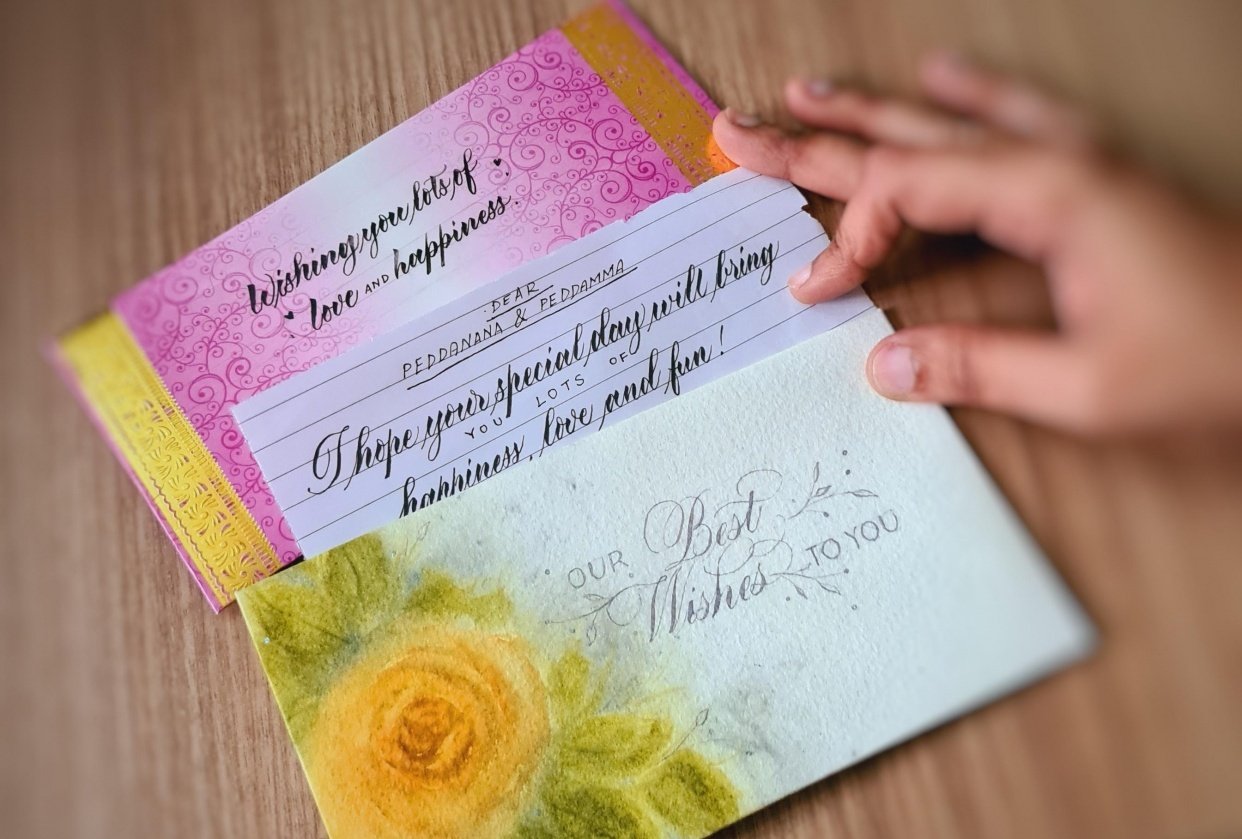 Wishing you lots of
love AND happiness.
DEAR
PEDDANANA & PEDDAMMA
I hope your special day will bring
YOU LOTS OF
happiness, love and fun!
OUR Best
Wishes TO YOU